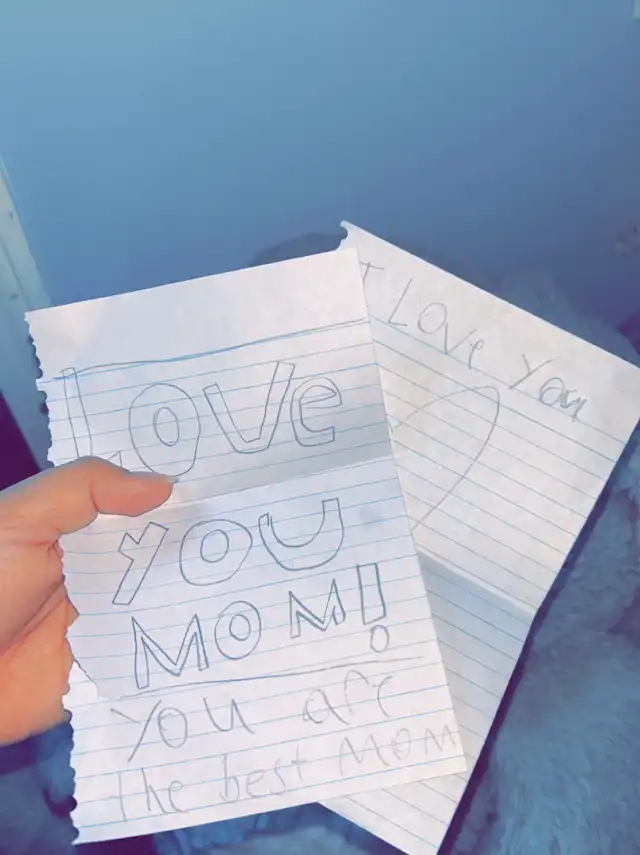 Love
YOU
MOM!
You are
the best MOM
I LOVe You